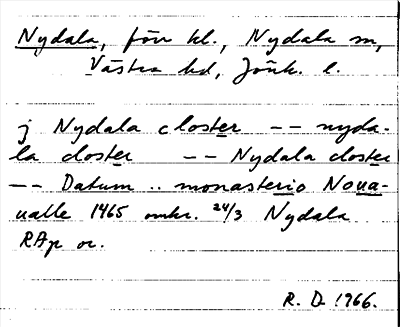 Nydala, förr kl., Nydala sn,
Västra hd, Jönk. l.
j Nydala closter -- nyda-
la closter -- Nydala closter
-- Datum .. monasterio Noua-
ualle 1465 omkr. 24/3 Nydala
RAp or.
R. D. 1966.